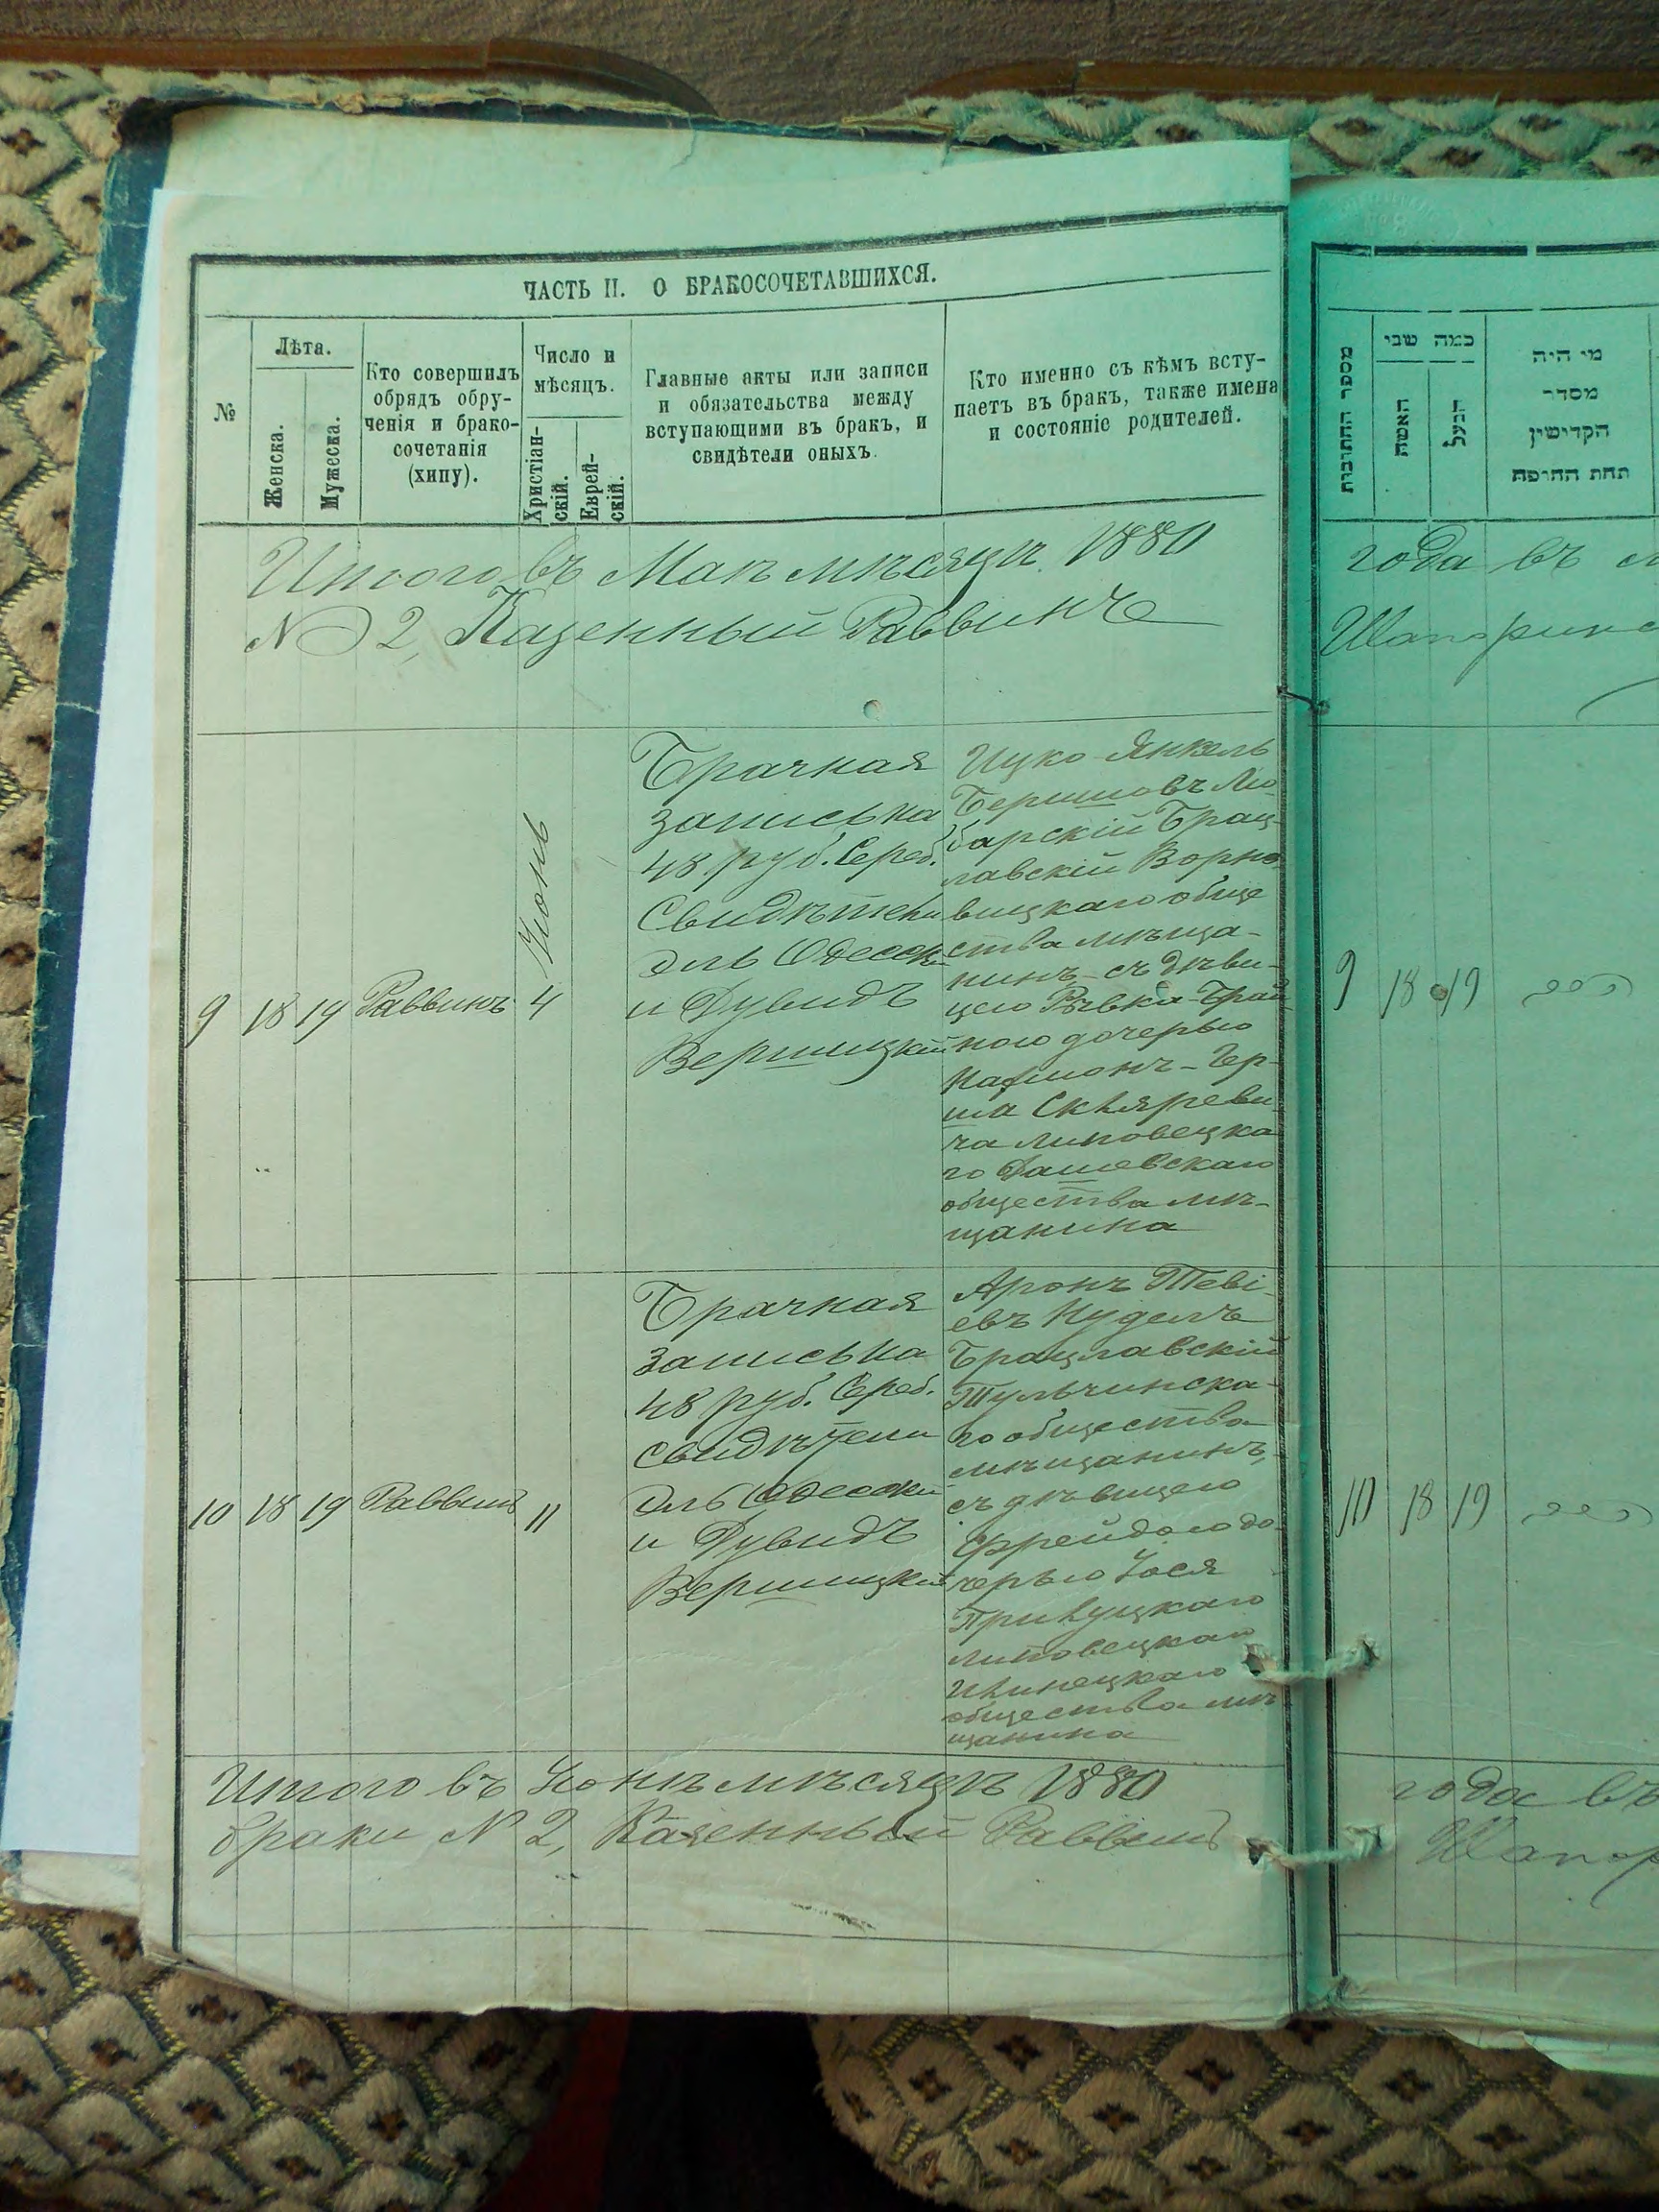 ЧАСТЬ II. О БРАКОСОЧЕТАВШИХСЯ.
№
Лѣта.
Женска.
Мужеска.
Кто совершилъ
обрядъ обру-
ченія и брако-
сочетанія
(хипу).
Число и
мѣсяцъ.
Христіан-
скій.
Еврей-
скій.
Главные акты или записи
и обязательства между
вступающими въ бракъ, и
свидѣтели оныхъ.
Кто именно съ кѣмъ всту-
паетъ въ бракъ, также имена
и состояніе родителей.
Итого въ Маѣ мѣсяцѣ 1880
№ 2, Казенный Раввинъ
9
18
19
Раввинъ
Іюнь
4
Брачная
запись на
48 руб. Сереб.
Свидѣтели
Эль Одесск
и Дувидъ
Вершицкій
Ицко-Янкель
Бершовъ Лю-
барскій Брац-
лавскій Ворно
вицкаго обще
ства мѣща-
нинъ съ дѣви-
цею Ривка-Брай
ною дочерью
Нафмонъ-Гер-
ша Скляреви
ча Липовецка
го Дашевскаго
общества мѣ-
щанина
10
18
19
Раввинъ
11
Брачная
запись на
48 руб. Сереб.
Свидѣтели
Эль Одесски
и Дувидъ
Вершицкій
Аронъ Теві-
евъ Кудель
Брацлавскій
Тульчинска-
го общества
мѣщанинъ,
съ дѣвицею
Фрейдою до-
черью Іося
Прилуцкаго
Липовецкаго
Илинецкаго
общества мѣ
щанина
Итого въ Іюнѣ мѣсяцѣ 1880
браки № 2, Казенный Раввинъ
מספר החתונות
כמה שני
האשה
הבעל
מי היה
מסדר
הקדישין
תחת החופה
года въ
9
18
19
הרב
10
18
19
הרב
года въ